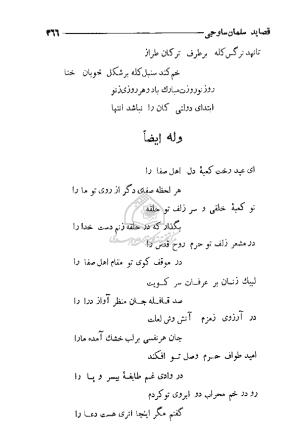 قصاید سلمان ساوجی ۳۶۶
تا نهد نرگس کله برطرف ترکان طراز
خم کند سنبل کله بر شکل خوبان ختا
روز نوروزت مبارك باد و هر روزی ز نو
ابتدای دولتی کان را نباشد انتها
وله ایضاً
ای عید رخت کعبهٔ دل اهل صفا را
هر لحظه صفای دگر از روی تو ما را
تو کعبهٔ خلقی و سر زلف تو حلقه
بگذار که در حلقه زنم دست خدا را
در مشعر زلف تو حرم روح قدس را
در موقف کوی تو مقام اهل صفا را
لبیك زنان بر عرفات سر کویت
صد قافلهٔ جان منظر آواز درا را
در آرزوی زمزم آتش وش لعلت
جان هر نفسی بر لب خشك آمده ما را
امید طواف حرم وصل تو افکند
در وادی غم طایفهٔ بیسر و پا را
رو در خم محراب دو ابروی تو کردم
گفتم مگر اینجا اثری هست دعا را